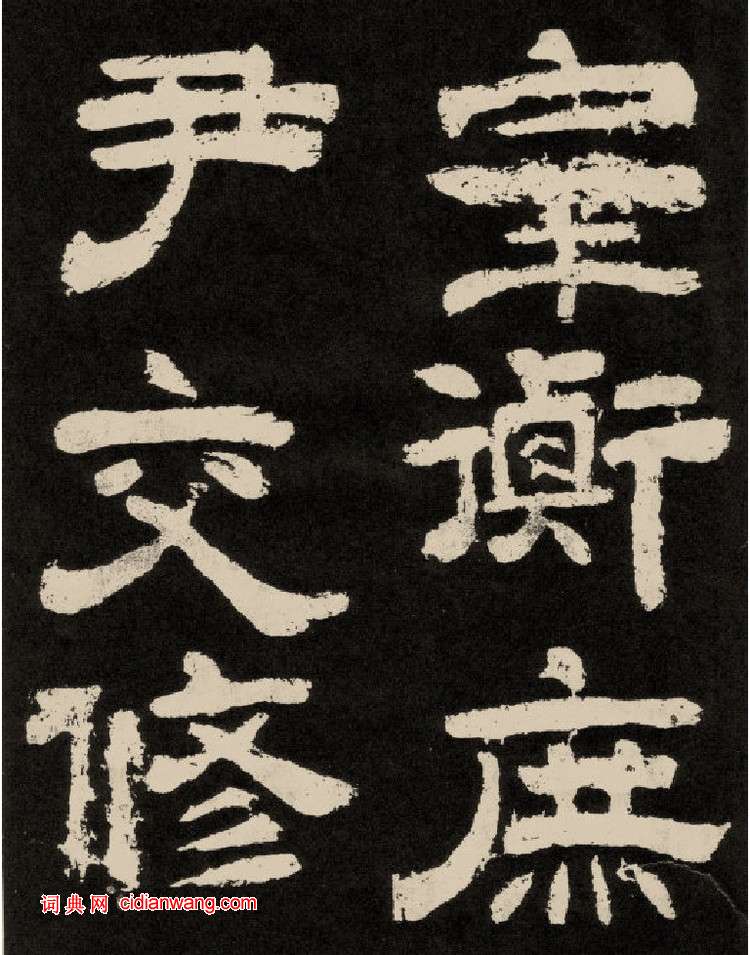 宰衡庶
尹交修
词典网 cidianwang.com